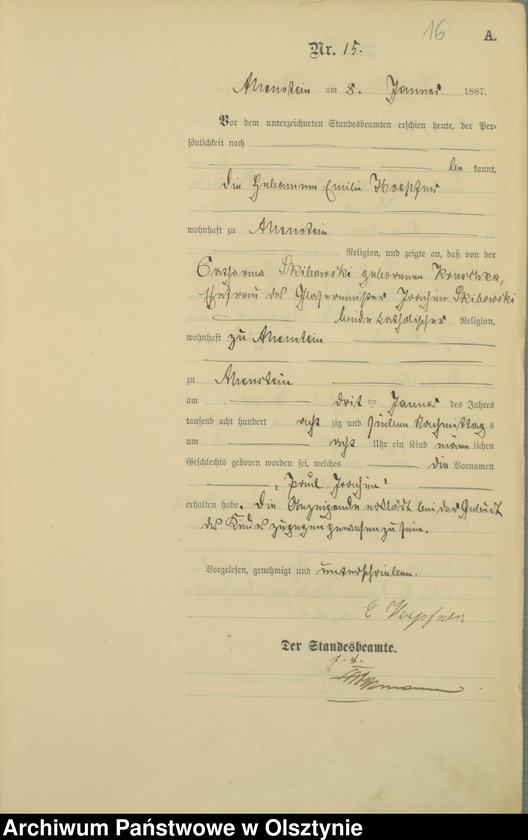 16
A.
Nr. 15.
Allenstein am 8. Januar 1887.
Vor dem unterzeichneten Standesbeamten erschien heute, der Per-
sönlichkeit nach
be kannt,
die Hebamme Emilie Hoepfner
wohnhaft zu Allenstein
Religion, und zeigte an, daß von der
Catharina Skibowski geborenen
Ehefrau des Glasermeister Joachim Skibowski
beide katholischer Religion,
wohnhaft zu Allenstein
zu Allenstein
am dritten Januar des Jahres
tausend acht hundert acht zig und sieben Nachmittag s
um acht Uhr ein Kind männ lichen
Geschlechts geboren worden sei, welches die Vornamen
„Paul Joachim“
erhalten habe. Die Anzeigende erklärt bei der Geburt
des Kindes zugegen gewesen zu sein.
Vorgelesen, genehmigt und unterschrieben.
E. Hoepfner.
Der Standesbeamte.
Archiwum Państwowe w Olsztynie